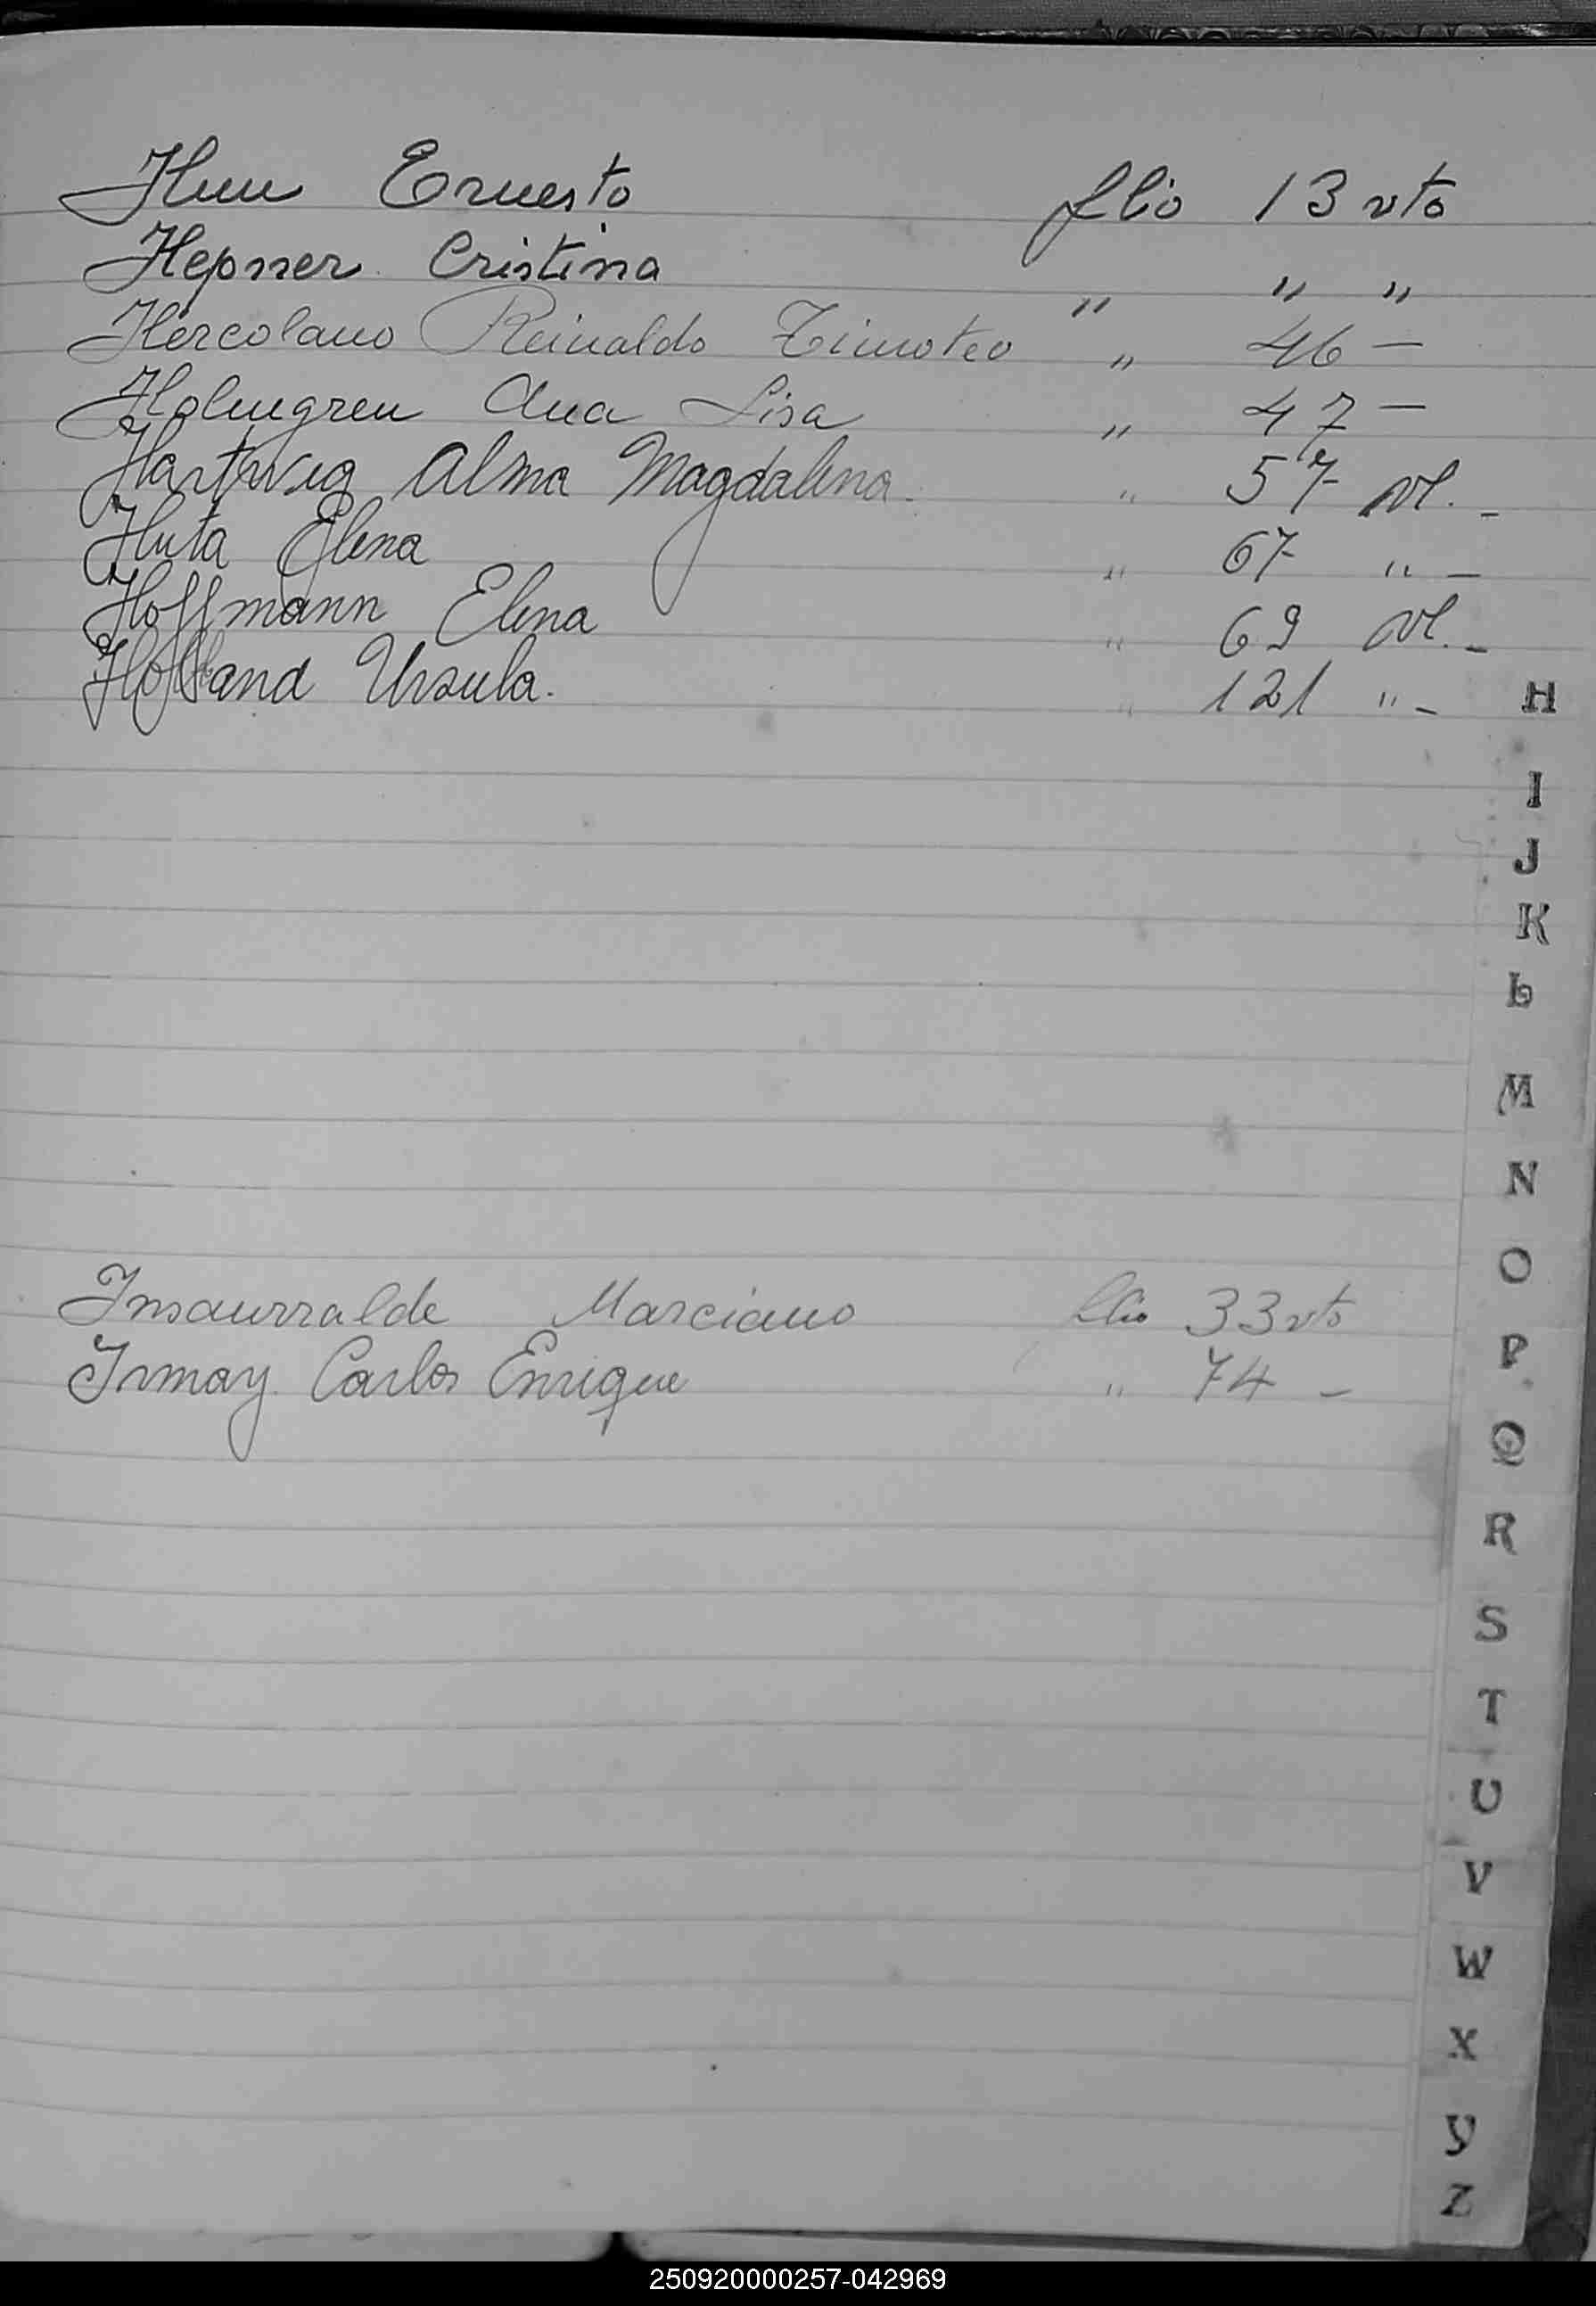 Hun Ernesto flio 13 vto
Hepner Cristina " " "
Hercolano Reinaldo Timoteo " 46 —
Holmgren Ana Lisa " 47 —
Hartwig Alma Magdalena. " 57 vl. -
Huta Elena " 67 " -
Hoffmann Elena " 69 vl. -
Holland Ursula. " 121 " - H
I
J
K
L
M
N
O
Insaurralde Marciano flio 33 vto
P
Irmay Carlos Enrique " 74 -
Q
R
S
T
U
V
W
X
Y
Z
250920000257-042969